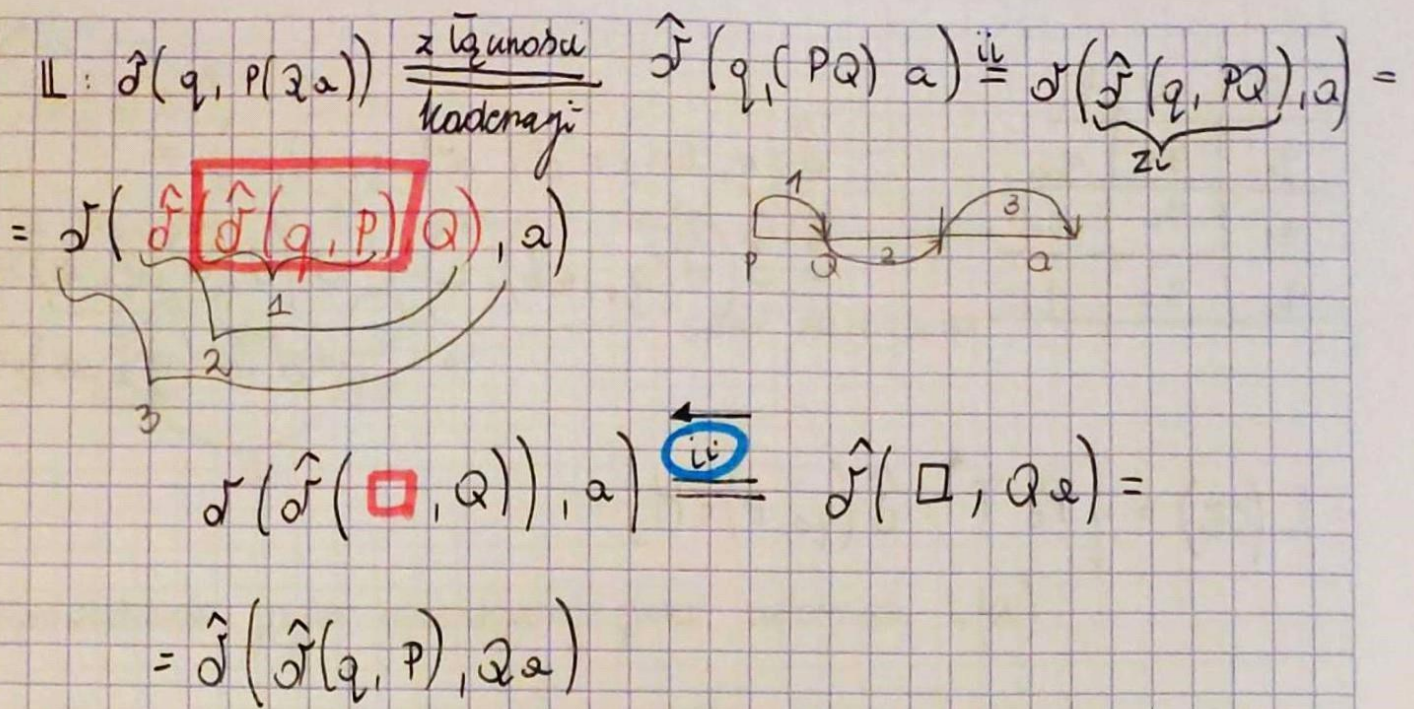 L: δ̂(q, P(Qa)) = z łączności konkatenacji δ̂(q,(PQ) a) =ii δ(δ̂(q, PQ), a) =
zi
= δ(δ̂(δ̂(q, P) Q), a)
1 2 3
P Q a
1
2
3
δ(δ̂(□, Q)), a) =ii δ̂(□, Qa) =
= δ̂(δ̂(q, P), Qa)